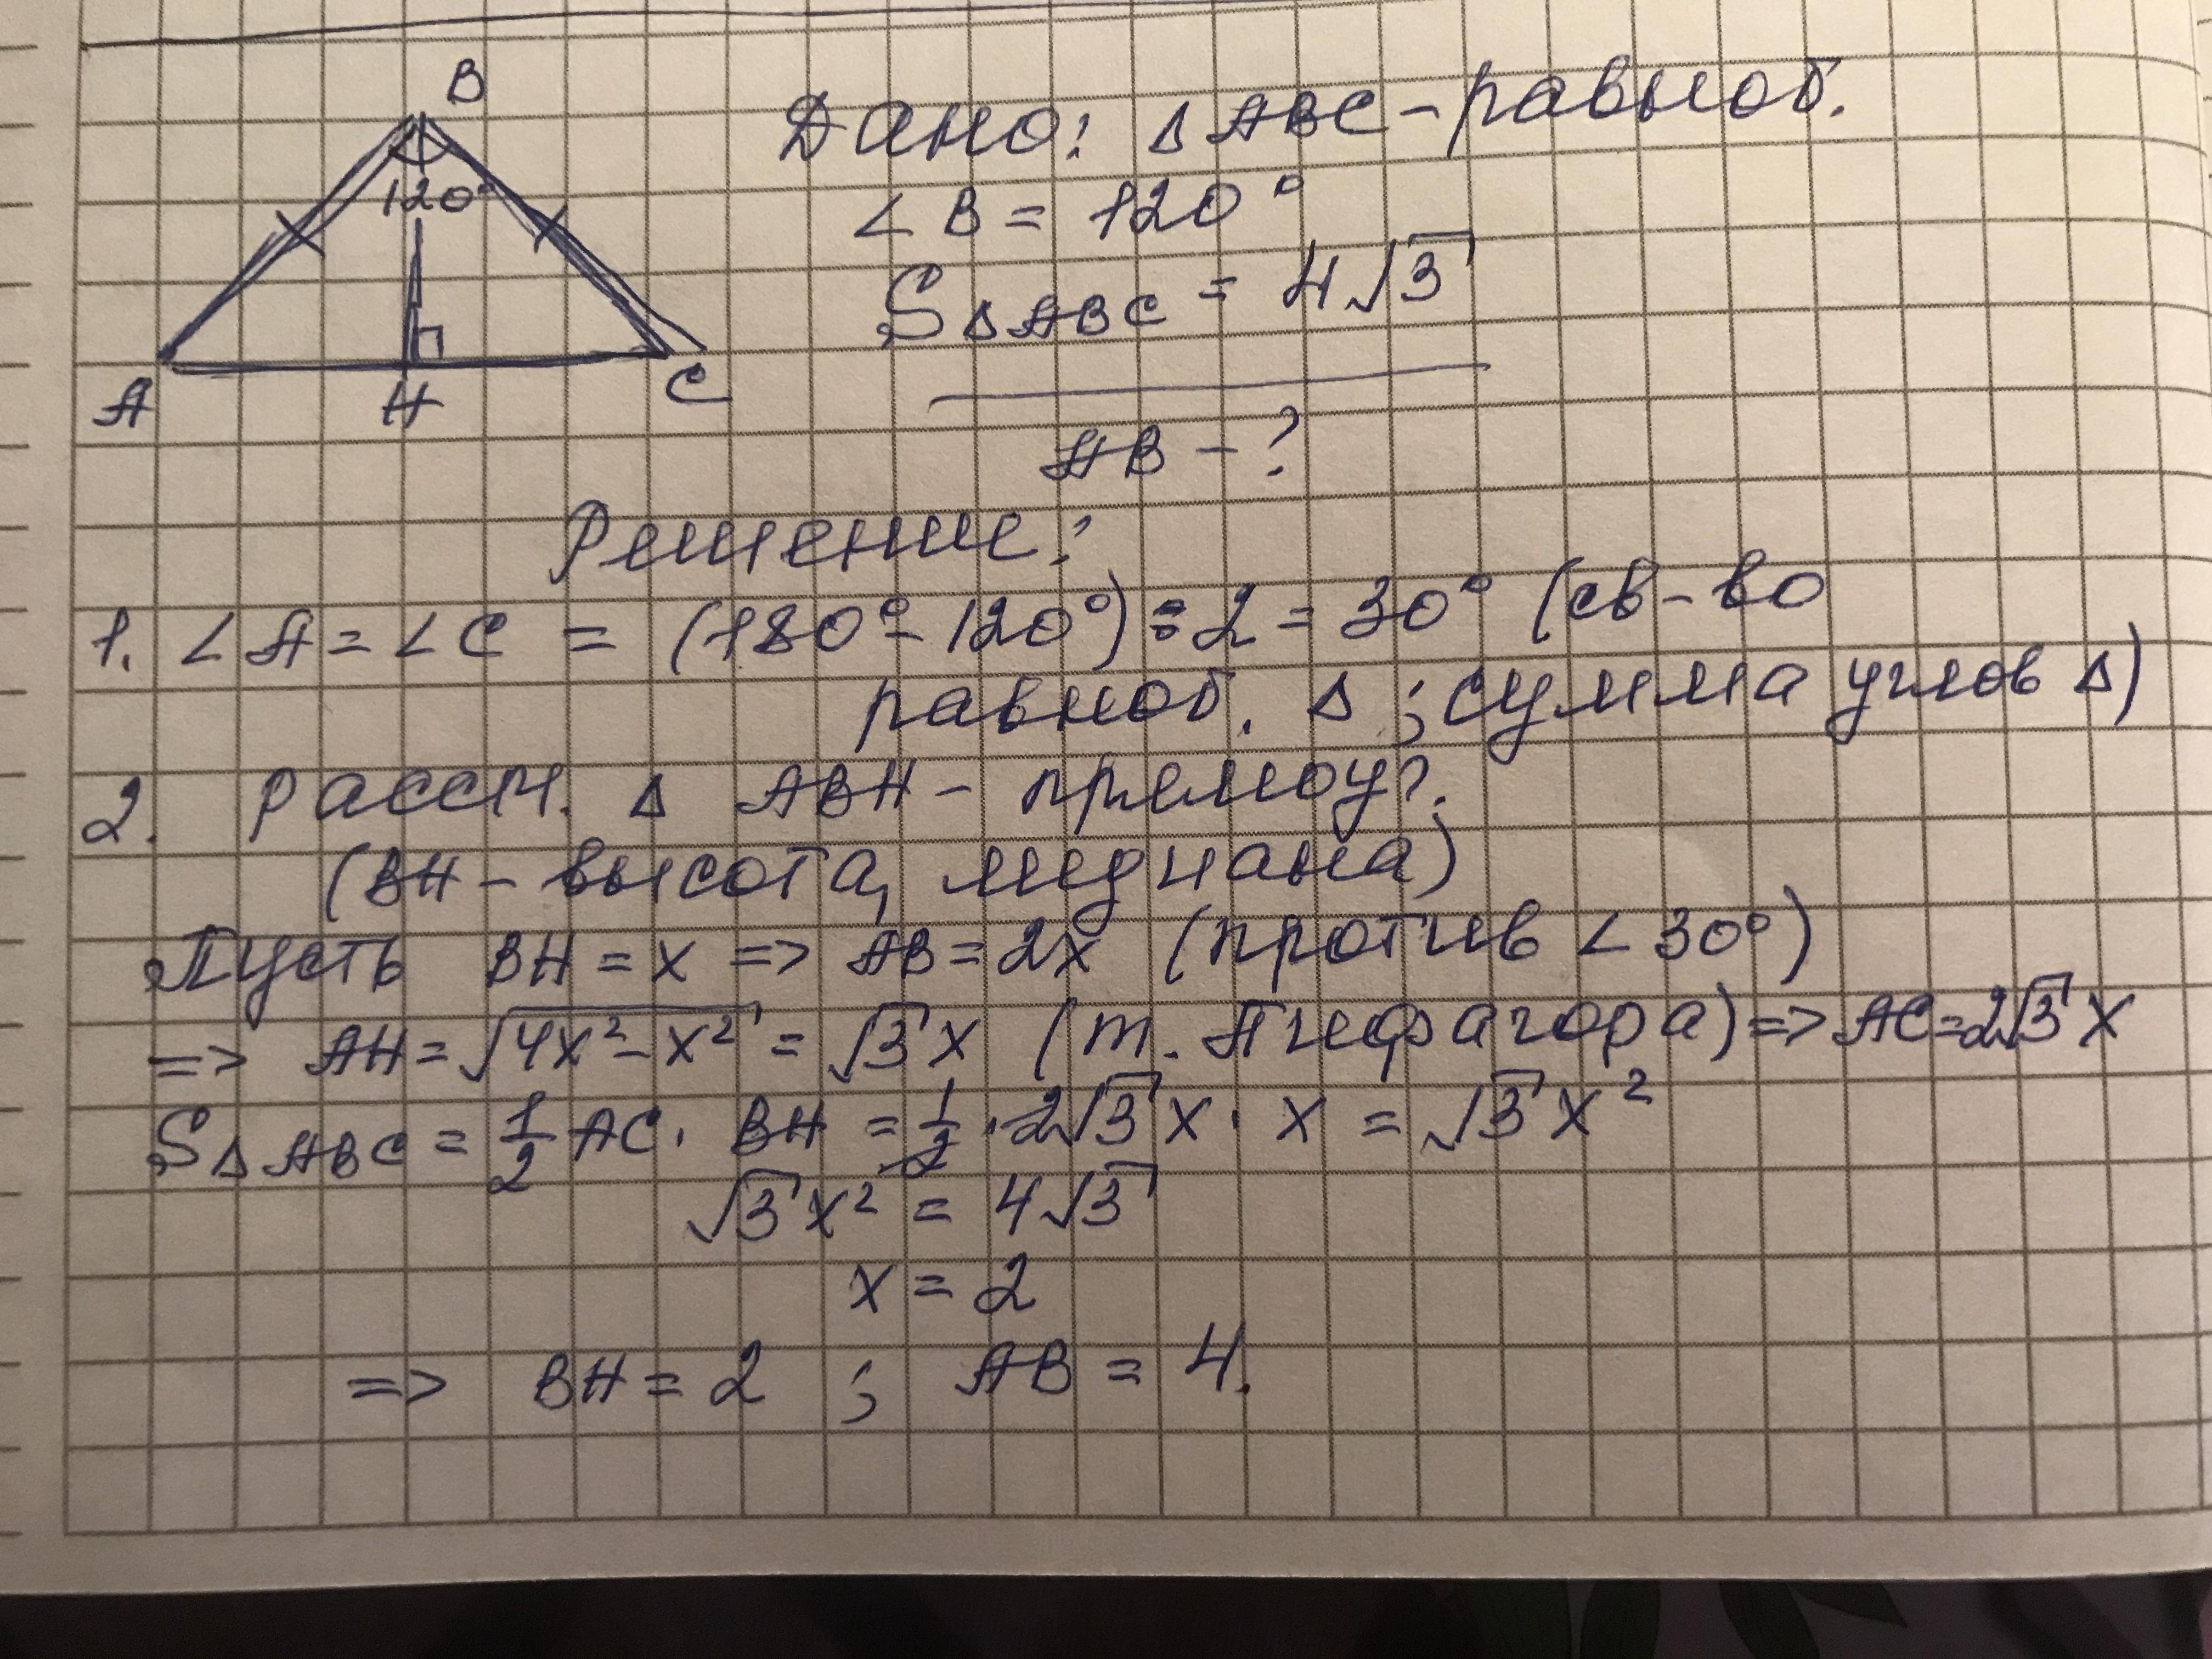 B
Дано: Δ ABC – равноб.
120°
∠ B = 120°
S Δ ABC = 4√3
A H C
AB – ?
Решение:
1. ∠ A = ∠ C = (180° – 120°) : 2 = 30° (св-во
равноб. Δ ; сумма углов Δ)
2. Рассм. Δ ABH – прямоуг.
(BH – высота, медиана)
Пусть BH = x => AB = 2x (против ∠ 30°)
=> AH = √4x² – x² = √3 x (т. Пифагора) => AC = 2√3 x
S Δ ABC = 1/2 AC · BH = 1/2 · 2√3 x · x = √3 x²
√3 x² = 4√3
x = 2
=> BH = 2 ; AB = 4.